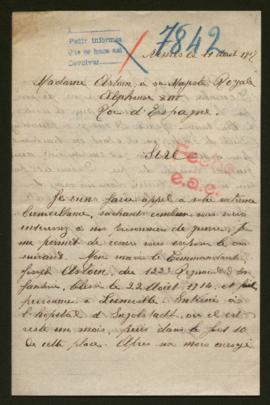 Pedir informes
que se hace así
Devolver
7842
Nimes le Août 1917
Madame Arloin, à sa Majesté Royale
Alphonse XIII
Roi d'Espagne.
Sire
Fecho
e.a.c.
Je viens faire appel à votre extrême
bienveillance, sachant combien vous vous
intéressez à nos prisonniers de guerre, Je
me permet de venir vous exposer le cas
suivant. Mon mari le Commandant
Joseph Arloin, du 122e Régiment d'In-
fanterie, blessé le 22 Août 1914, et fait
prisonnier à Lunéville. Interné à
l'hôpital d'Ingolstadt, où il est
resté un mois, puis dans le fort 10
De cette place. Après un mois envoyé